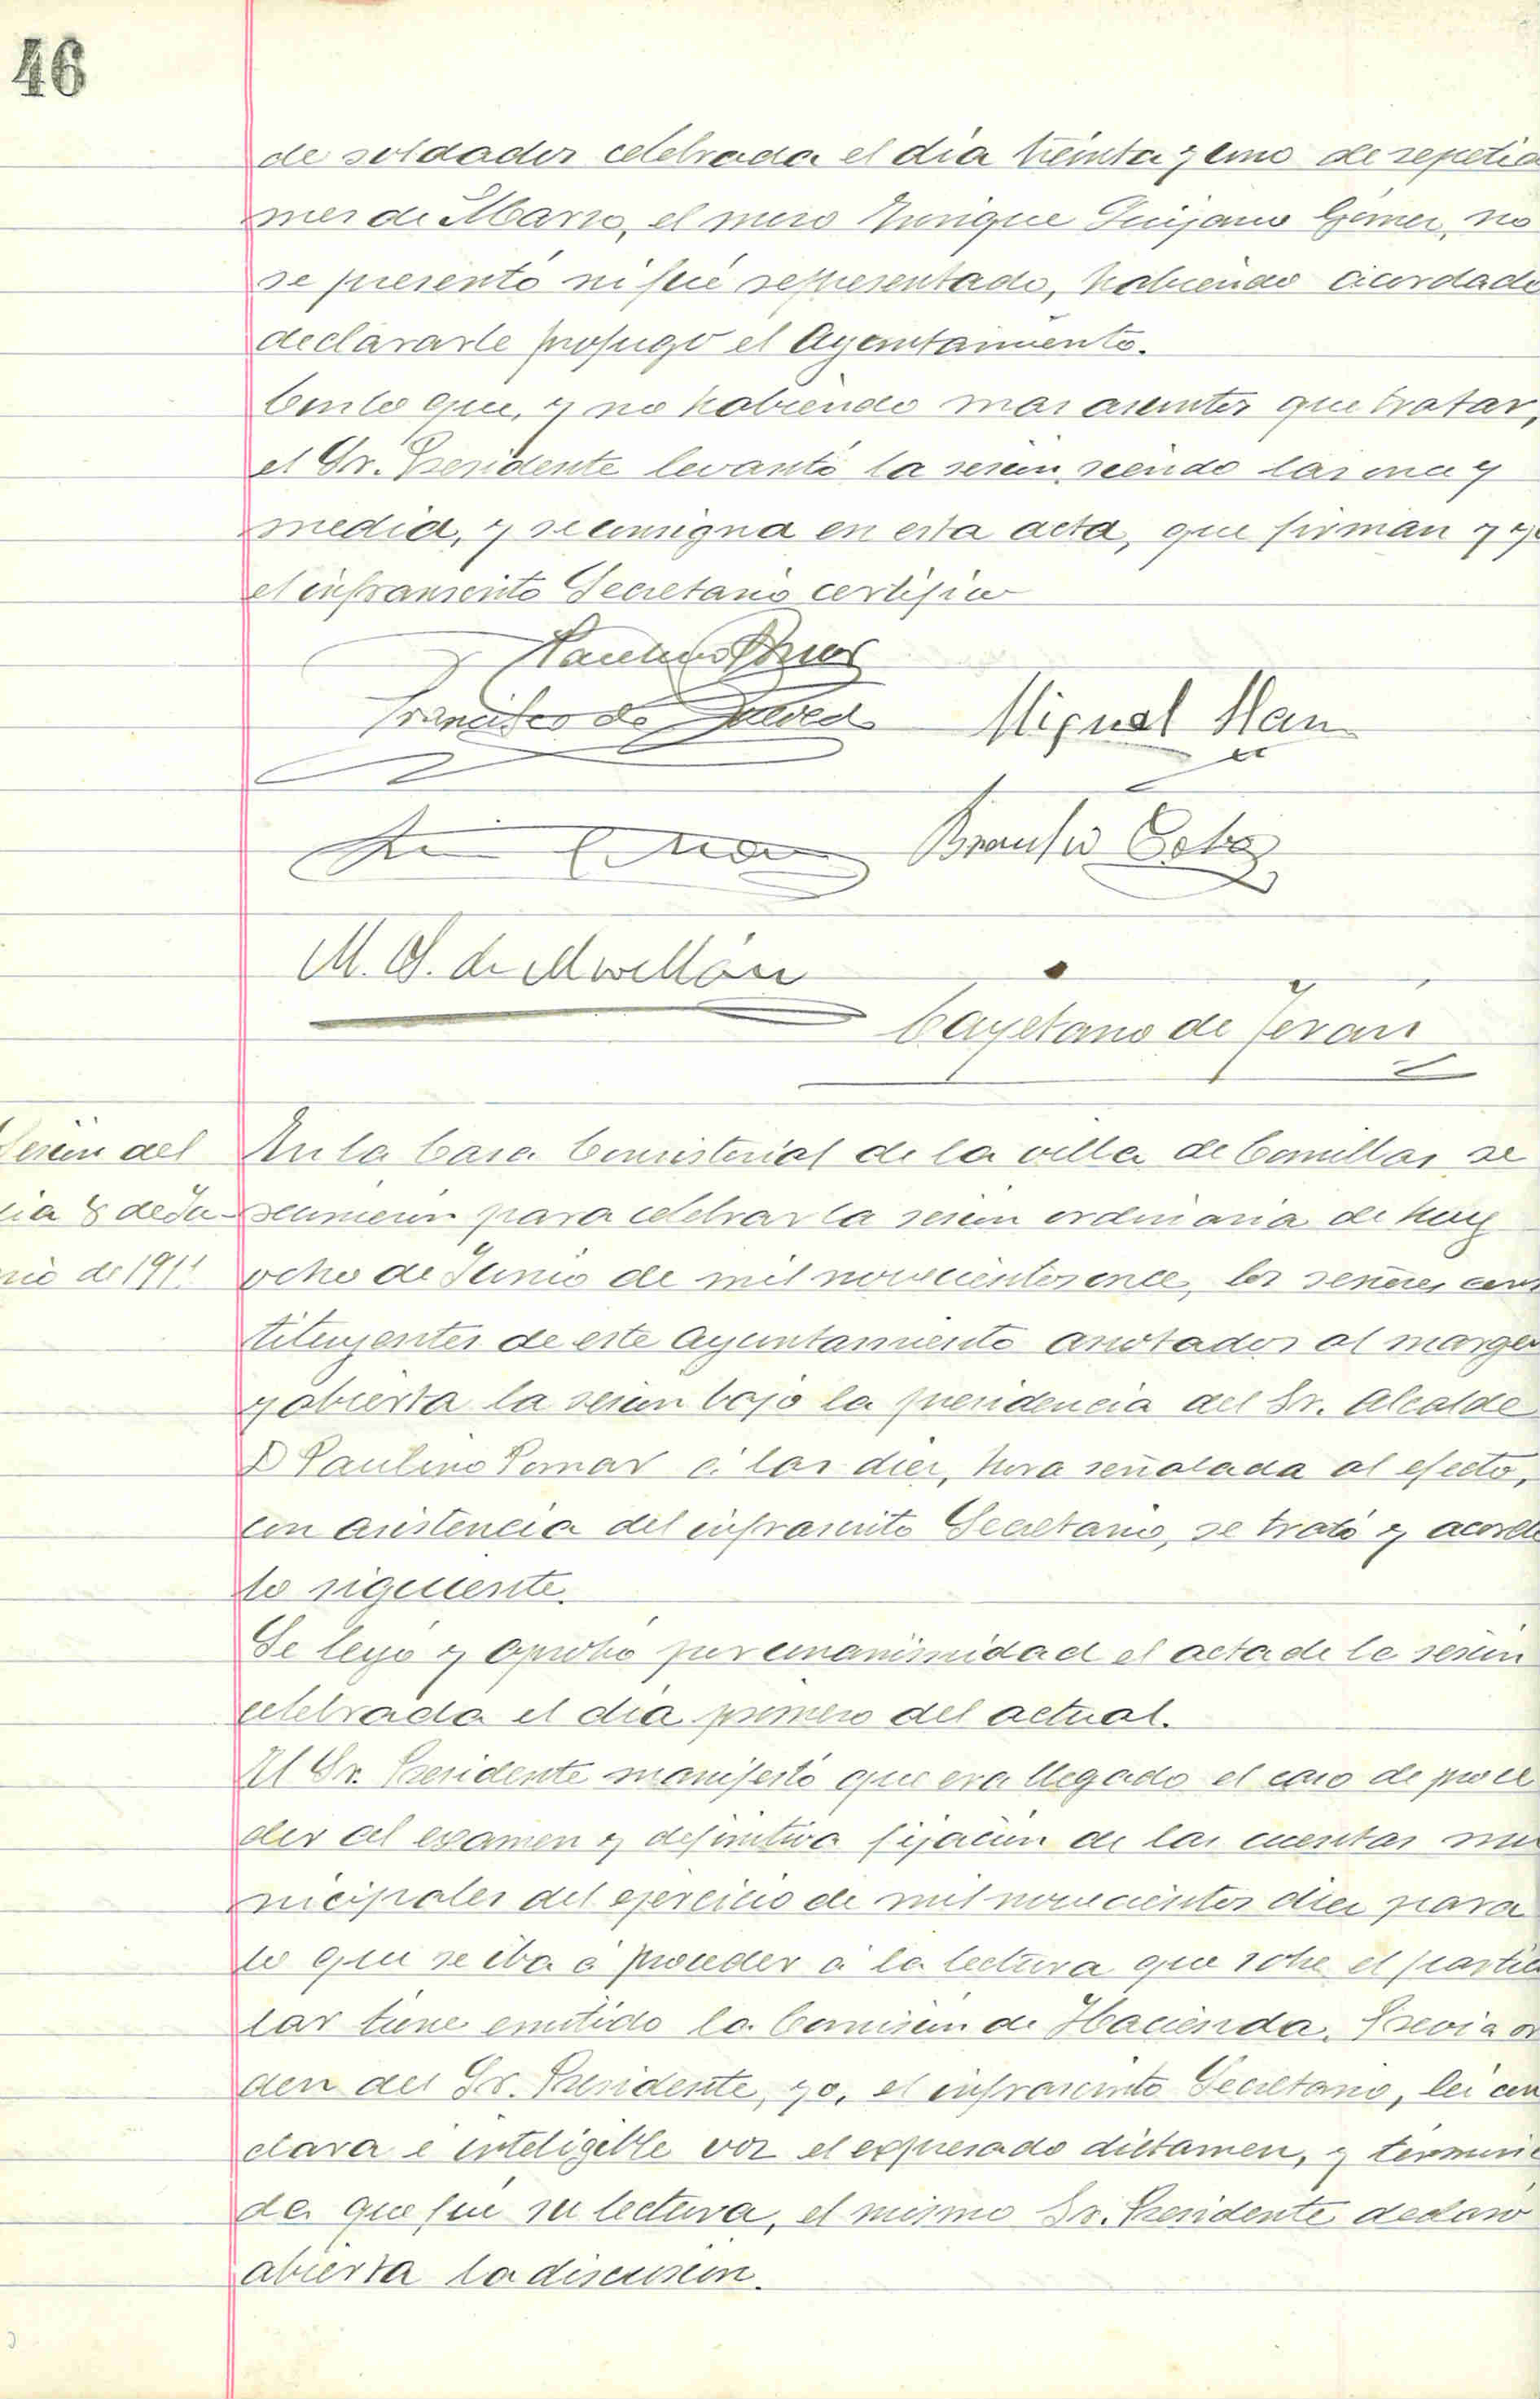 46
de soldados celebrada el dia treinta y uno de repetid
mes de Marzo, el mozo Enrique Quijano Gómez, no
se presentó ni fué representado, habiendo acordado
declararle profugo el Ayuntamiento.
Con lo que, y no habiendo mas asuntos que tratar,
el Sr. Presidente levantó la sesion, siendo las once y
media, y se consigna en esta acta, que firman y yo
el infrascrito Secretario certifico
Paulino Pomar
Francisco de
Miguel
Braulio
M. S. de Movellán
Cayetano de Terán
Sesion del
dia 8 de Ju-
nio de 1911
En la Casa Consistorial de la villa de Comillas se
reunieron para celebrar la sesion ordinaria de hoy
ocho de Junio de mil novecientos once, los señores cons
tituyentes de este Ayuntamiento anotados al margen
y abierta la sesion bajo la presidencia del Sr. Alcalde
D Paulino Pomar á las diez, hora señalada al efecto,
con asistencia del infrascrito Secretario, se trató y acordó
lo siguiente.
Se leyó y aprobó por unanimidad el acta de la sesion
celebrada el dia primero del actual.
El Sr. Presidente manifestó que era llegado el caso de proce
der al examen y definitiva fijacion de las cuentas mu
nicipales del ejercicio de mil novecientos diez para
lo que se iba á proceder á la lectura que sobre el particu
lar tiene emitido la Comision de Hacienda. Previa or
den del Sr. Presidente, yo, el infrascrito Secretario, lei con
clara é inteligible voz el expresado dictamen, y termina
da que fué su lectura, el mismo Sr. Presidente declaró
abierta la discusion.